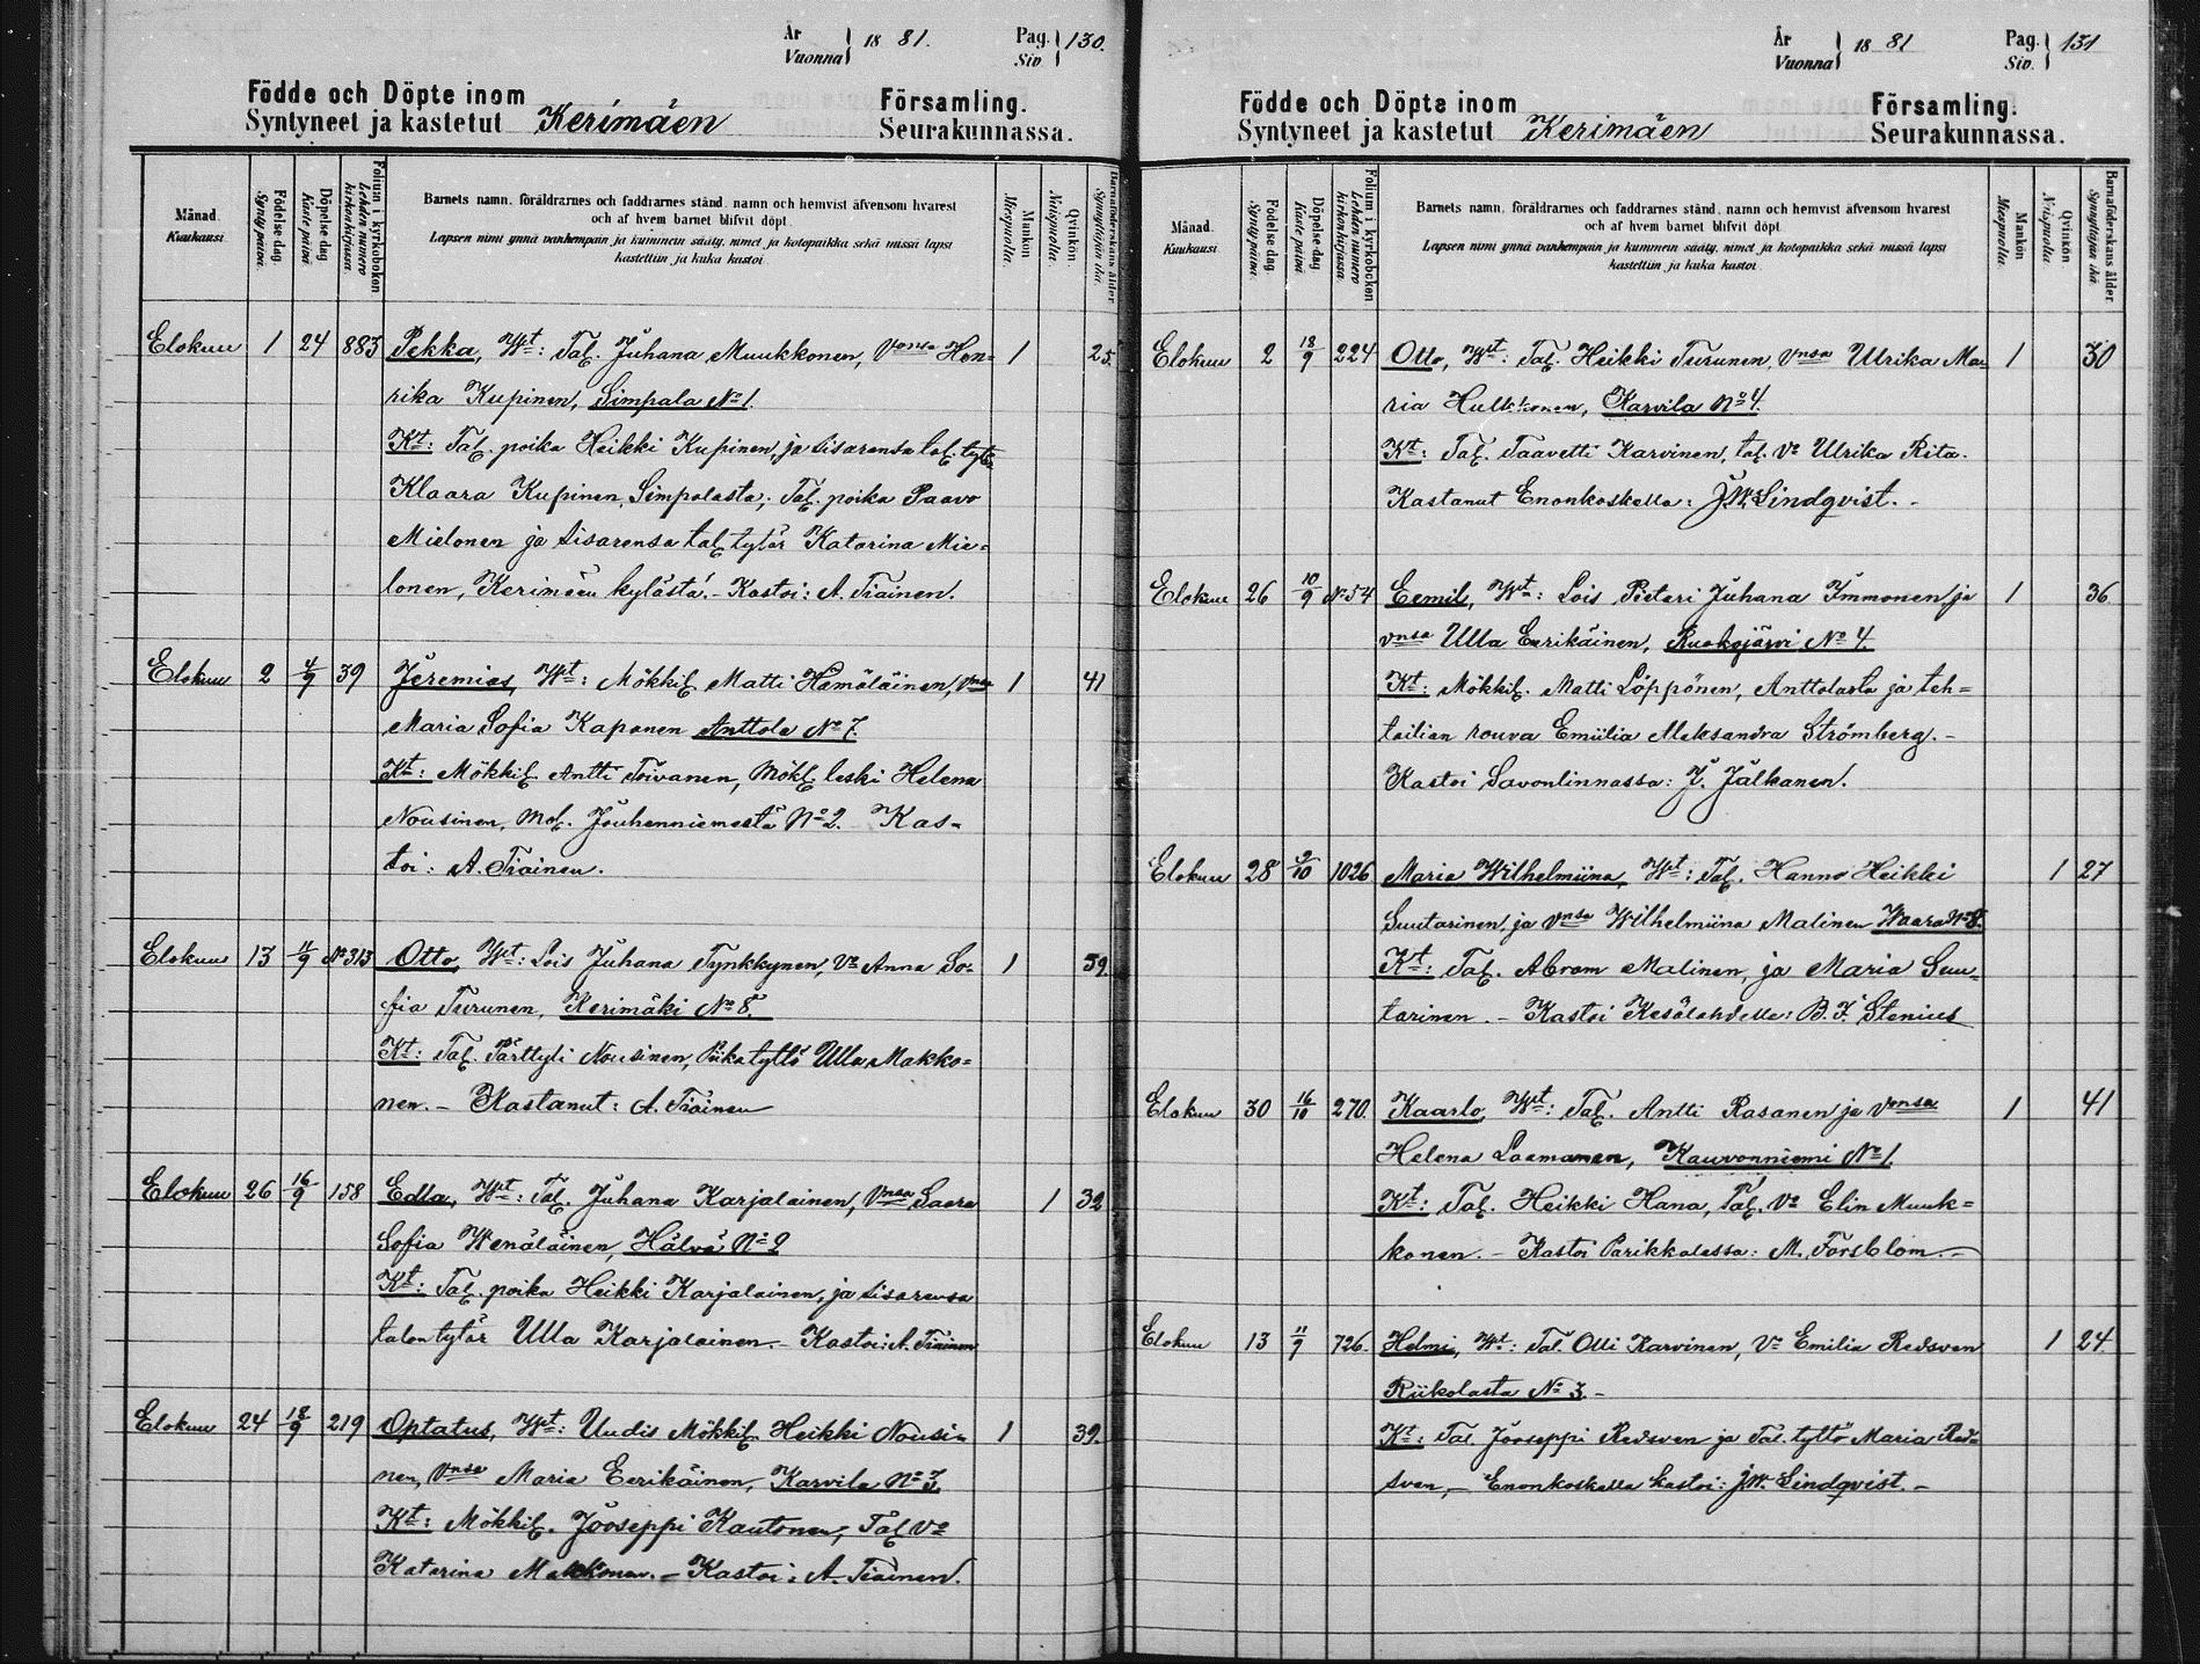 År
Vuonna
18 81.
Pag.
Siv.
130.
Födde och Döpte inom
Syntyneet ja kastetut
Kerimäen
Församling.
Seurakunnassa.
Månad.
Kuukausi.
Födelse dag.
Synty päivä.
Döpelse dag
Kaste päivä
Folium i kyrkoboken
Lehden numero kirkonkirjassa
Barnets namn, föräldrarnes och faddrarnes stånd, namn och hemvist äfvensom hvarest
och af hvem barnet blifvit döpt.
Lapsen nimi ynnä vanhempain ja kummein sääty, nimet ja kotopaikka sekä missä lapsi
kastettiin ja kuka kastoi.
Mankön
Miespuolia.
Qvinkön.
Naispuolia.
Barnaföderskans ålder.
Synnyttäjän ikä.
Elokuu 1 24 883 Pekka, Wt: Tal. Juhana Muukkonen, Vonsa Hen= 1 25.
rika Kupinen, Simpala No 1.
Kt: Tal. poika Heikki Kupinen, ja sisarensa tal. tytär
Klaara Kupinen, Simpalasta; Tal. poika Paavo
Mielonen ja sisarensa tal. tytär Katarina Mie=
lonen, Kerimäen kylästä. - Kastoi: A. Tiainen.
Elokuu 2 4/9 39 Jeremias, Wt: Mökkil. Matti Hämäläinen, Vnsa 1 41
Maria Sofia Kaponen Anttola No 7.
Kt: Mökkil. Antti Toivanen, Mökl. leski Helena
Nousinen, Mol. Jouhenniemestä No 2. Kas=
toi: A. Tiainen.
Elokuu 13 11/9 No 313 Otto, Wt: Lois Juhana Tynkkynen, Vo Anna So= 1 59.
fia Turunen, Kerimäki No 8.
Kt: Tal. Pärttyli Nousinen, Piikatyttö Ulla Makko=
nen. - Kastanut: A. Tiainen
Elokuu 26 16/9 158 Edla, Wt: Tal. Juhana Karjalainen, Vnsa Saara 1 32
Sofia Wenäläinen, Hälvä No 2
Kt: Tal. poika Heikki Karjalainen, ja sisarensa
talon tytär Ulla Karjalainen. - Kastoi: A. Tiainen
Elokuu 24 18/9 219 Optatus, Wt: Uudis Mökkil. Heikki Nousi= 1 39.
nen, Vnsa Maria Eerikäinen, Karvila No 3.
Kt: Mökkil. Jooseppi Kautonen, Tal. Vo
Katarina Makkonen. - Kastoi: A. Tiainen.
År
Vuonna
18 81
Pag.
Siv.
131
Födde och Döpte inom
Syntyneet ja kastetut
Kerimäen
Församling.
Seurakunnassa.
Månad.
Kuukausi.
Födelse dag
Synty päivä.
Döpelse dag
Kaste päivä
Folium i kyrkoboken
Lehden numero kirkonkirjassa
Barnets namn, föräldrarnes och faddrarnes stånd, namn och hemvist äfvensom hvarest
och af hvem barnet blifvit döpt.
Lapsen nimi ynnä vanhempain ja kummein sääty, nimet ja kotopaikka sekä missä lapsi
kastettiin ja kuka kastoi.
Mankön
Miespuolia.
Qvinkön
Naispuolia
Barnaföderskans ålder
Synnyttäjän ikä
Elokuu 2 18/9 224 Otto, Wt: Tal. Heikki Turunen, Vnsa Ulrika Ma= 1 30
ria Hulkkonen, Karvila No 4.
Kt: Tal. Taavetti Karvinen, tal. Vo Ulrika Rita.
Kastanut Enonkoskella: J.W. Lindqvist. -
Elokuu 26 10/9 No 54 Eemil, Wt: Lois Pietari Juhana Immonen ja 1 36
vnsa Ulla Eerikäinen, Ruokojärvi No 4.
Kt: Mökkil. Matti Löppönen, Anttolasta ja teh=
tailian rouva Emiilia Aleksandra Strömberg. -
Kastoi Savonlinnassa: J. Jalkanen.
Elokuu 28 2/10 1026 Maria Wilhelmiina, Wt: Tal. Hanno Heikki 1 27
Suutarinen, ja Vnsa Wilhelmiina Malinen Waara No 8.
Kt: Tal. Abram Malinen, ja Maria Suu=
tarinen. - Kastoi Kesälahdella: B. J. Stenius
Elokuu 30 16/10 270. Kaarlo, Wt: Tal. Antti Rasanen ja Vonsa 1 41
Helena Laamanen, Kauvonniemi No 1.
Kt: Tal. Heikki Hana, Tal. Vo Elin Muuk=
konen. - Kastoi Parikkalassa: M. Forsblom. -
Elokuu 13 11/9 726. Helmi, Wt: Tal. Olli Karvinen, Vo Emilia Redsven 1 24.
Riikolasta No 3. -
Kt: Tal. Jooseppi Redsven ja Tal. tyttö Maria Red=
sven, - Enonkoskella kastoi: J.W. Lindqvist. -